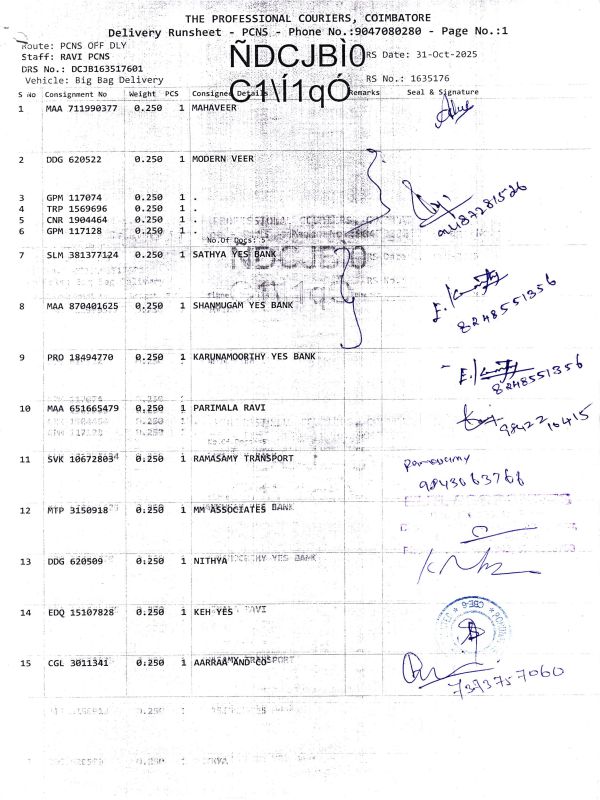 THE PROFESSIONAL COURIERS, COIMBATORE
Delivery Runsheet - PCNS - Phone No.:9047080280 - Page No.:1
Route: PCNS OFF DLY
Staff: RAVI PCNS
RS Date: 31-Oct-2025
DRS No.: DCJB163517601
Vehicle: Big Bag Delivery
RS No.: 1635176
ÑDCJBÌ0
C1\Í1qÓ
S No Consignment No Weight PCS Consigned Details Remarks Seal & Signature
1 MAA 711990377 0.250 1 MAHAVEER
2 DDG 620522 0.250 1 MODERN VEER
3 GPM 117074 0.250 1 .
4 TRP 1569696 0.250 1 .
5 CNR 1904464 0.250 1 .
6 GPM 117128 0.250 1 .
No.Of Docs: 5
7 SLM 381377124 0.250 1 SATHYA YES BANK
8 MAA 870401625 0.250 1 SHANMUGAM YES BANK
8248551356
9 PRO 18494770 0.250 1 KARUNAMOORTHY YES BANK
8248551356
10 MAA 651665479 0.250 1 PARIMALA RAVI
9842210415
11 SVK 10672803 0.250 1 RAMASAMY TRANSPORT
9843063766
12 MTP 3150918 0.250 1 MM ASSOCIATES
13 DDG 620509 0.250 1 NITHYA
14 EDQ 15107828 0.250 1 KEH YES
15 CGL 3011341 0.250 1 AARRAA AND CO
7373757060